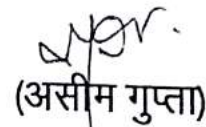 (असीम गुप्ता)